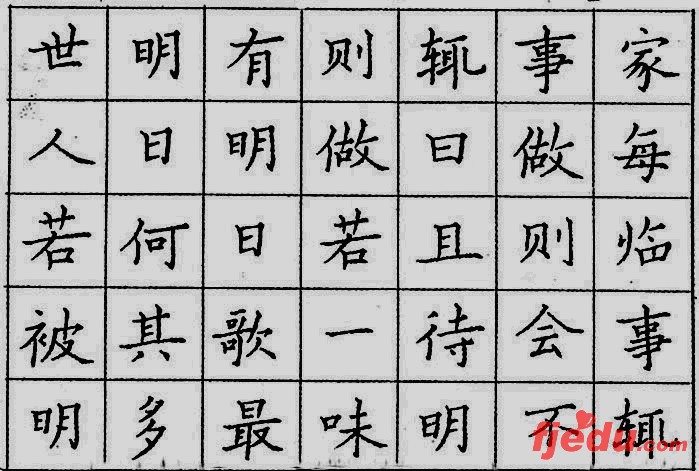 家每临事辄
事做则会不
辄曰且待明
则做若一味
有明日歌最
明日何其多
世人若被明
fjedu.com